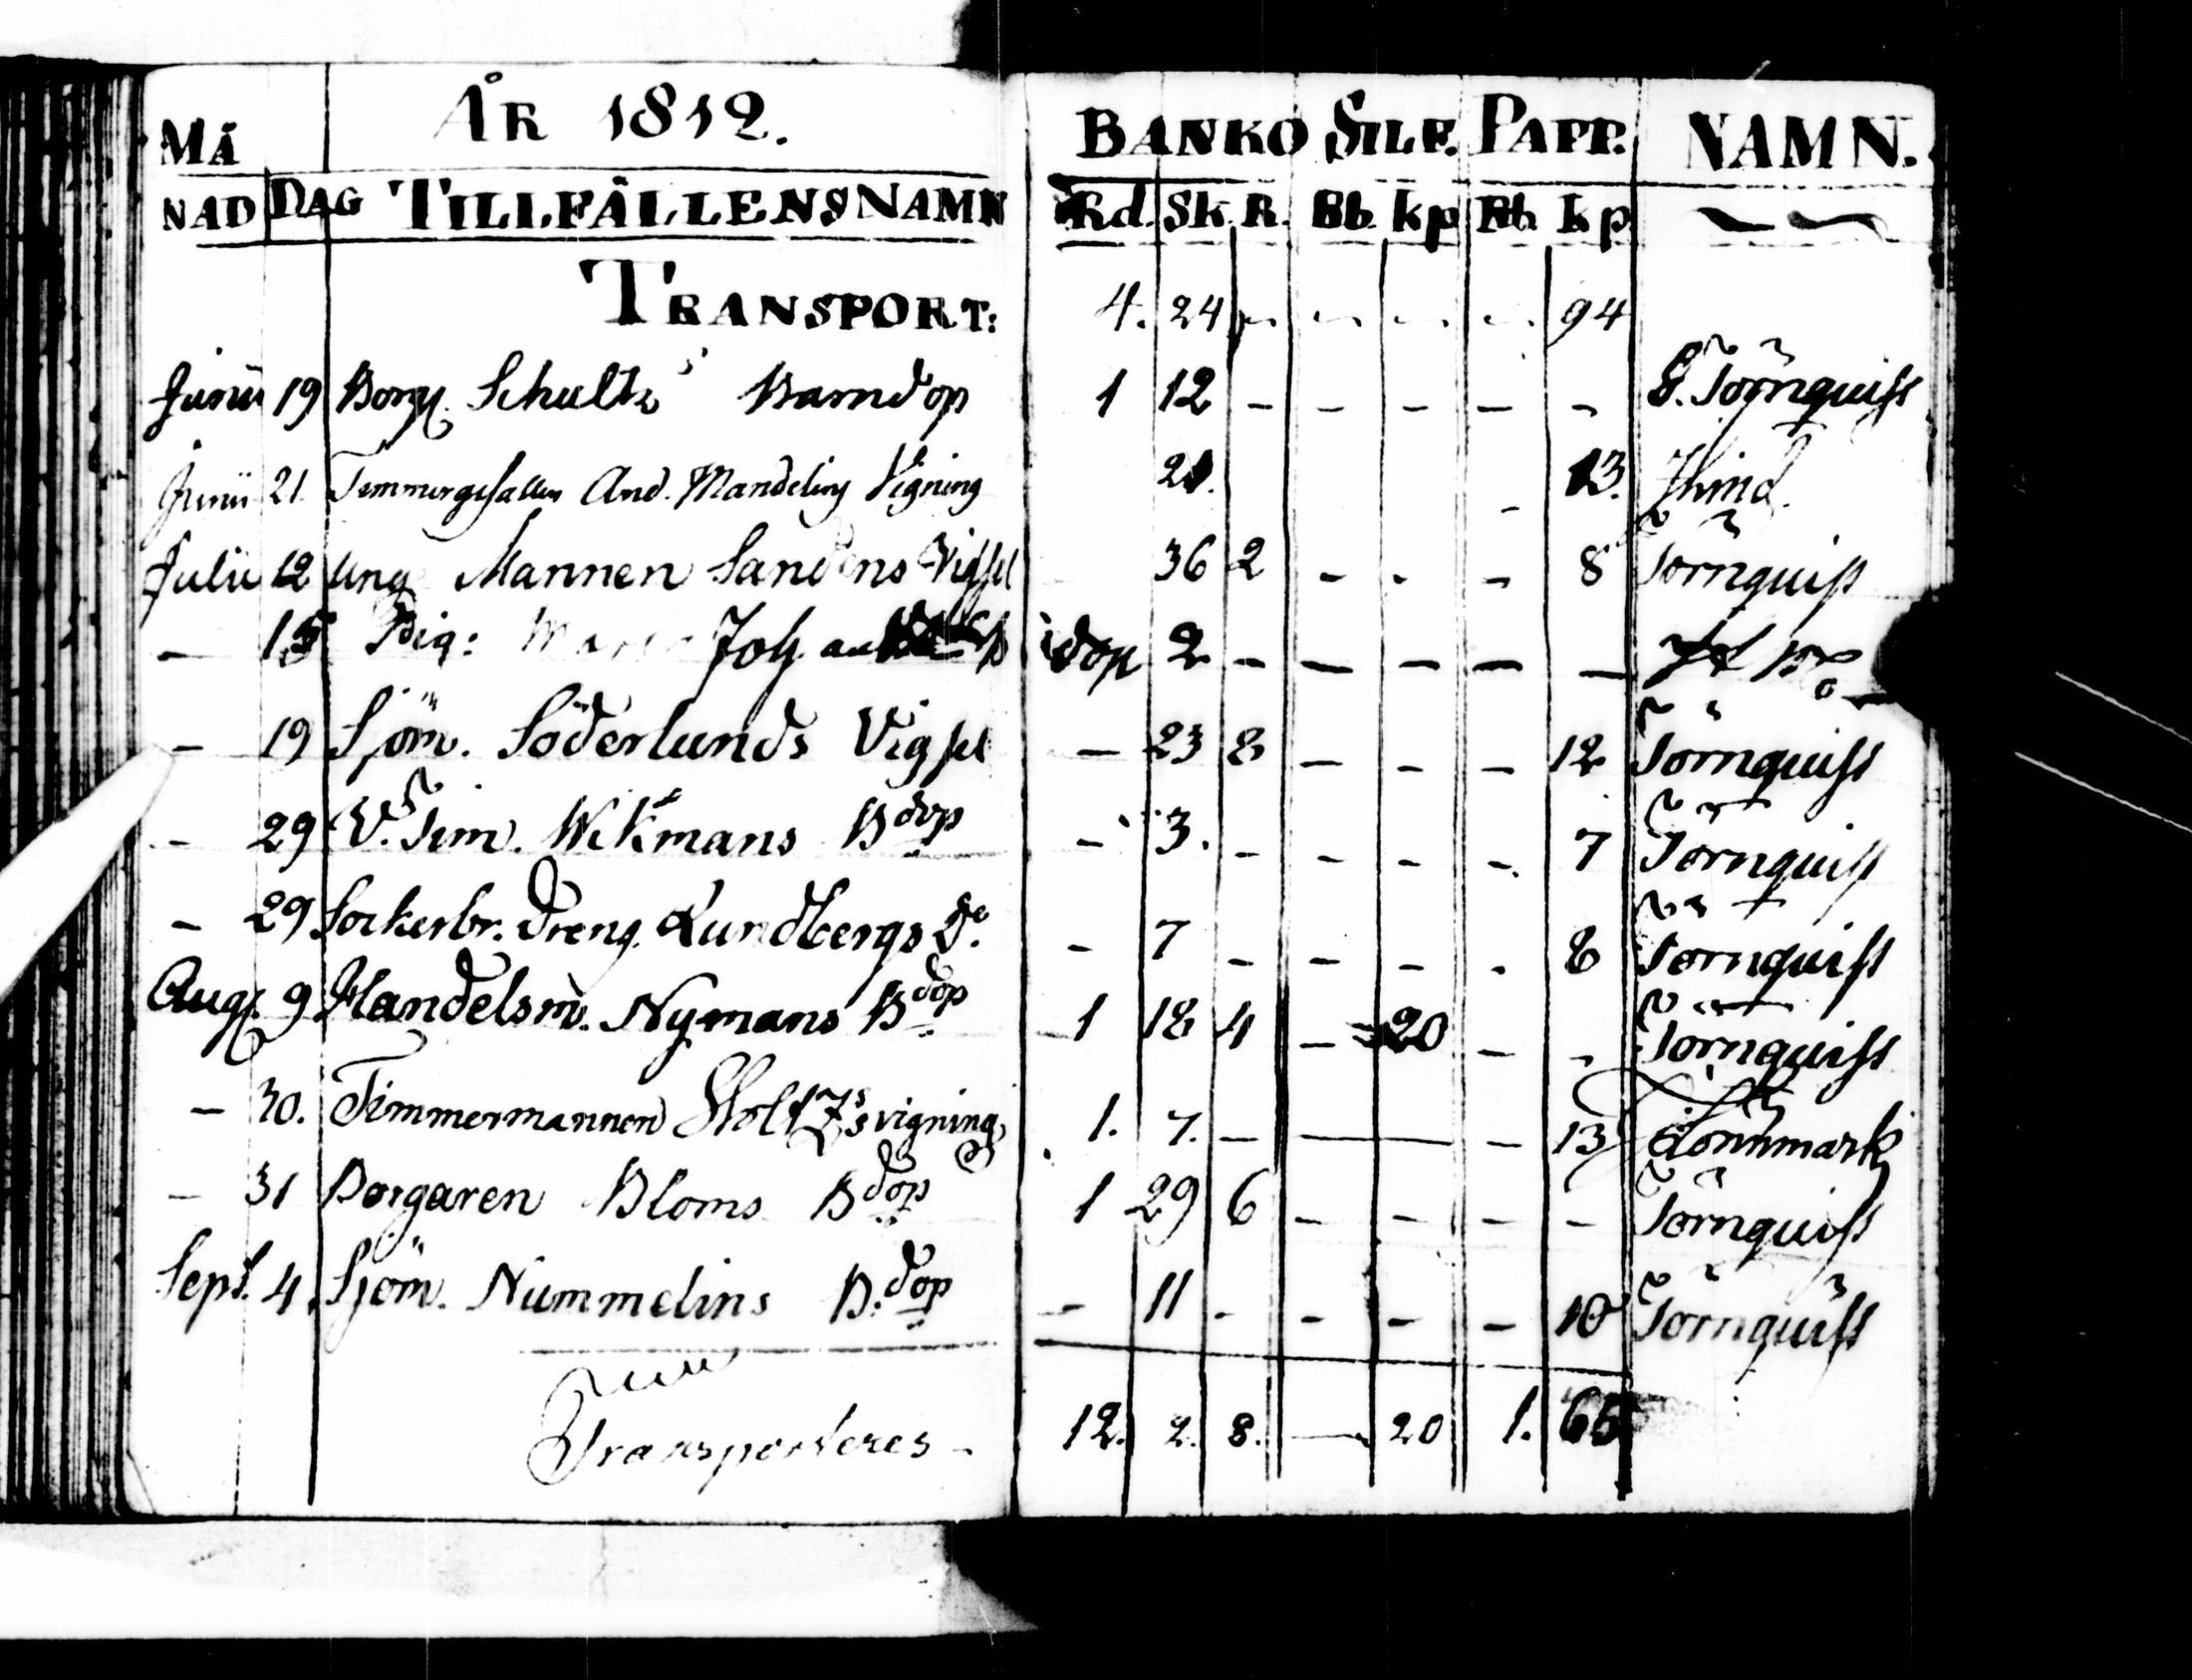 ÅR 1812. BANKO SILF. PAPP. NAMN.
MÅ
NAD DAG TILLFÄLLENS NAMN Rd. Sk. R. Rb. kp Rb kp
TRANSPORT: 4. 24 - - - - 94
Junii 19 Borg. Schultz's Barndop 1 12 - - - - - Törnquist
Junii 21. Timmergesällen And. Mandelins Vigning 21. - 13.
Julii 12 Ung Mannen Sandens Vigsel 36 2 - - - 8 Törnquist
- 15 Pig: Maria Joh dop 2 - - - - -
- 19 Sjöm. Söderlunds Vigsel - 23 8 - - - 12 Törnquist
- 29 V. Tim. Wikmans Bdop - 3. - - - - 7 Törnquist
- 29 Sockerbr. Dreng. Lundbergs Do - 7 - - - - 8 Törnquist
Aug. 9 Handelsm. Nymans Bdop 1 18 4 - 20 - - Törnquist
- 30. Timmermannen Holtz's vigning 1. 7. - - - 13 Lönnmark
- 31 Borgaren Bloms Bdop 1 29 6 - - - - Törnquist
Sept. 4. Sjöm. Nummelins B.dop - 11 - - - - 10 Törnquist
Transporteres - 12. 2. 8. - 20 1. 65